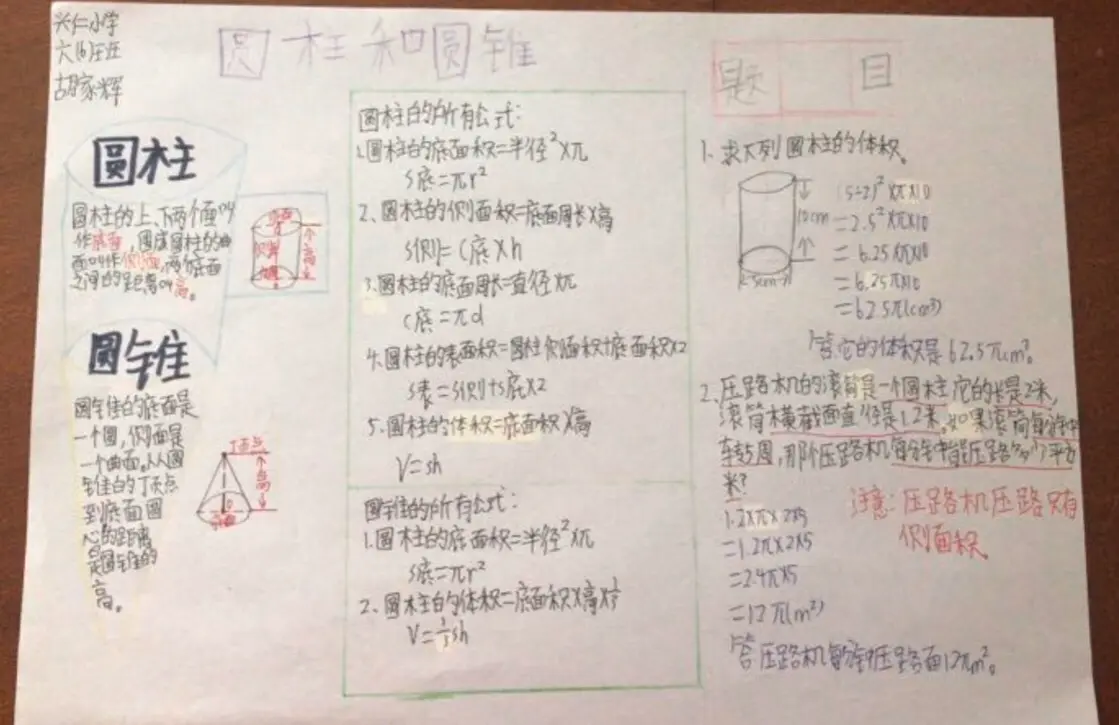 兴仁小学
六(6)班
胡家辉
圆柱和圆锥
圆柱
圆柱的上、下两个面叫
作底面,围成圆柱的曲
面叫作侧面,两个底面
之间的距离叫高。
底面
侧面
底面
高
圆锥
圆锥的底面是
一个圆,侧面是
一个曲面。从圆
锥的顶点
到底面圆
心的距离
是圆锥的
高。
顶点
高
底面
圆柱的所有公式:
1.圆柱的底面积=半径²×π
S底=πr²
2、圆柱的侧面积=底面周长×高
S侧=C底×h
3.圆柱的底面周长=直径×π
C底=πd
4.圆柱的表面积=圆柱侧面积+底面积×2
S表=S侧+S底×2
5.圆柱的体积=底面积×高
V=sh
圆锥的所有公式:
1.圆柱的底面积=半径²×π
S底=πr²
2、圆柱的体积=底面积×高×⅓
V=⅓sh
题目
1.求下列圆柱的体积。
10cm
5cm
(5÷2)²×π×10
=2.5²×π×10
=6.25×π×10
=6.25π×10
=62.5π(cm³)
答:它的体积是62.5πcm³。
2.压路机的滚筒是一个圆柱,它的长是2米,
滚筒横截面直径是1.2米,如果滚筒每分钟
转5周,那个压路机每分钟能压路多少平方
米?
1.2×π×2×5
=1.2π×2×5
=2.4π×5
=12π(m²)
答:压路机每分钟压路面12πm²。
注意:压路机压路只有
侧面积